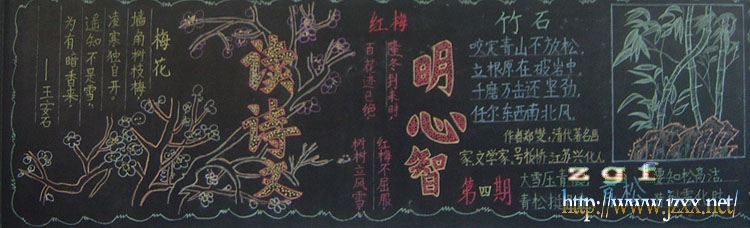 梅花
墙角树枝梅
凌寒独自开。
遥知不是雪，
为有暗香来
——王安石
读诗文
红梅
隆冬到来时
百花迹已绝
红梅不屈服
树树立风雪
明心智
第四期
竹石
咬定青山不放松，
立根原在破岩中，
千磨万击还坚劲，
任尔东西南北风。
作者郑燮，清代著名画
家文学家，号板桥，江苏兴化人
大雪压青
青松
知松高洁
zgf
http://www.jzxx.net/